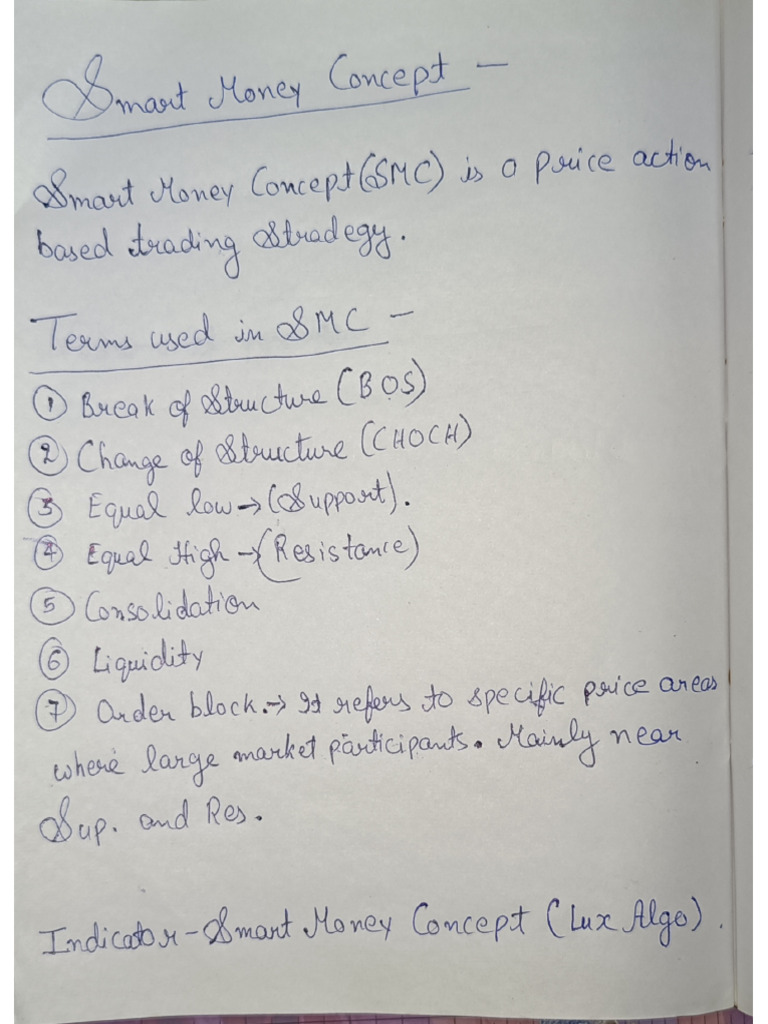 Smart Money Concept -
Smart Money Concept (SMC) is a price action
based trading stradegy.
Terms used in SMC -
① Break of Structure (BOS)
② Change of Structure (CHOCH)
③ Equal low → (Support).
④ Equal High → (Resistance)
⑤ Consolidation
⑥ Liquidity
⑦ Order block. → It refers to specific price areas
where large market participants. Mainly near
Sup. and Res.
Indicator - Smart Money Concept (Lux Algo).